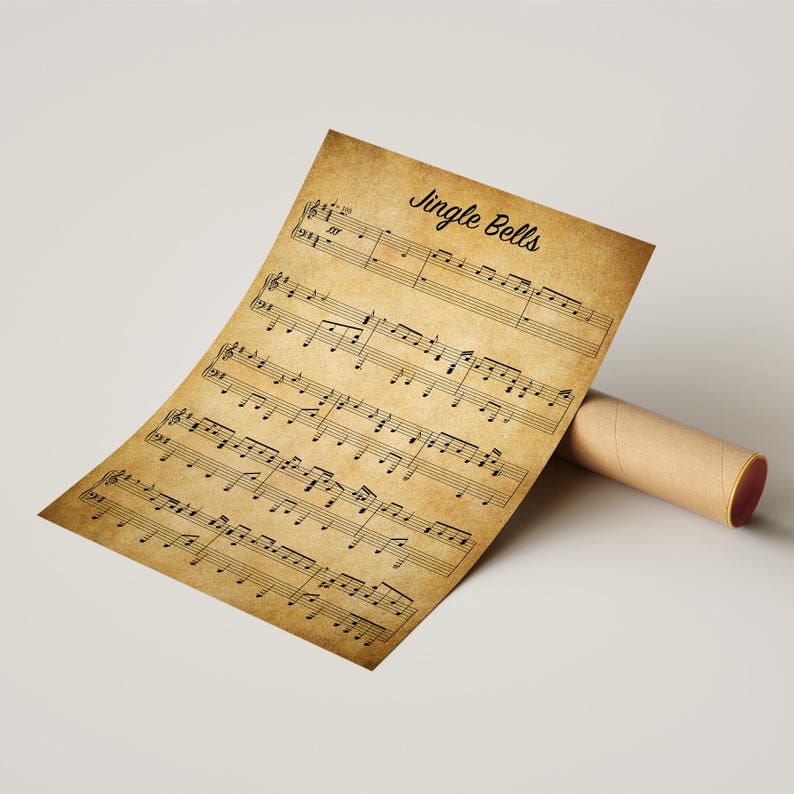 Jingle Bells
♩= 100
fff